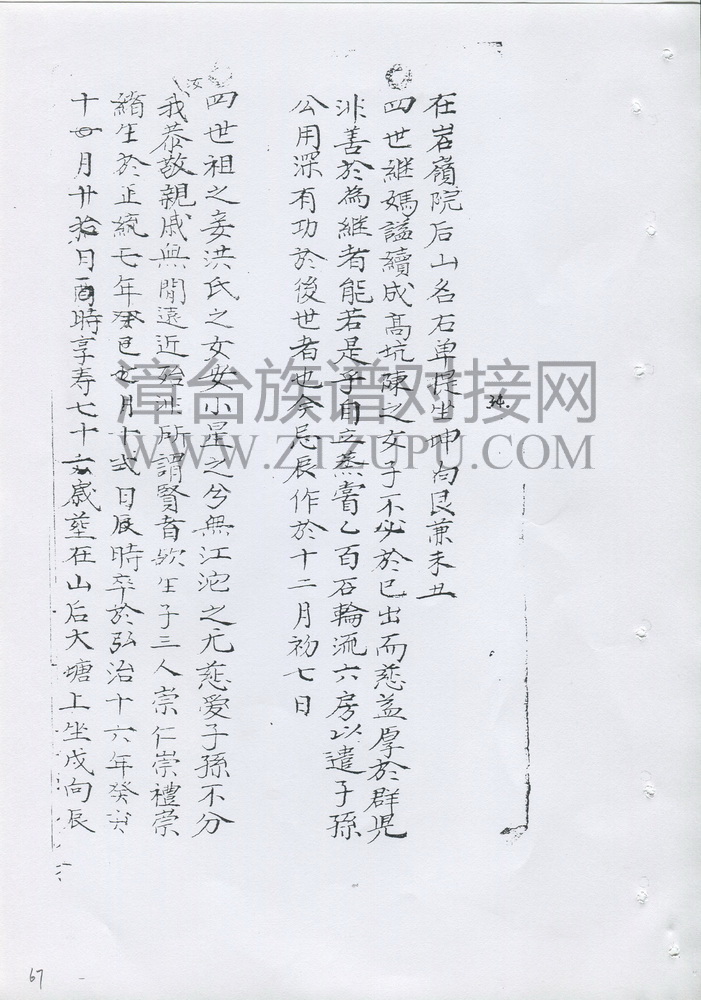 在岩嶺院后山名石单提坐坤向艮兼未丑
四世继媽謚續成高坑陳之女子不必於已出而慈益厚於群児
非善於為继者能若是乎用立蒸嘗乙百石輪流六房以遣子孫
公用深有功於後世者也矣忌辰作於十二月初七日
四世祖之妾洪氏之女安小星之兮無江沱之尤慈愛子孫不分
汝我恭敬親戚無閒遠近殆非所謂賢者欤生子三人崇仁崇禮崇
緒生於正統七年 月十弍日辰時卒於弘治十六年癸亥
十 月廿 日酉時享寿七十 歲塟在山后大塘上坐戌向辰
漳台族谱对接网
WWW.ZTZUPU.COM
67